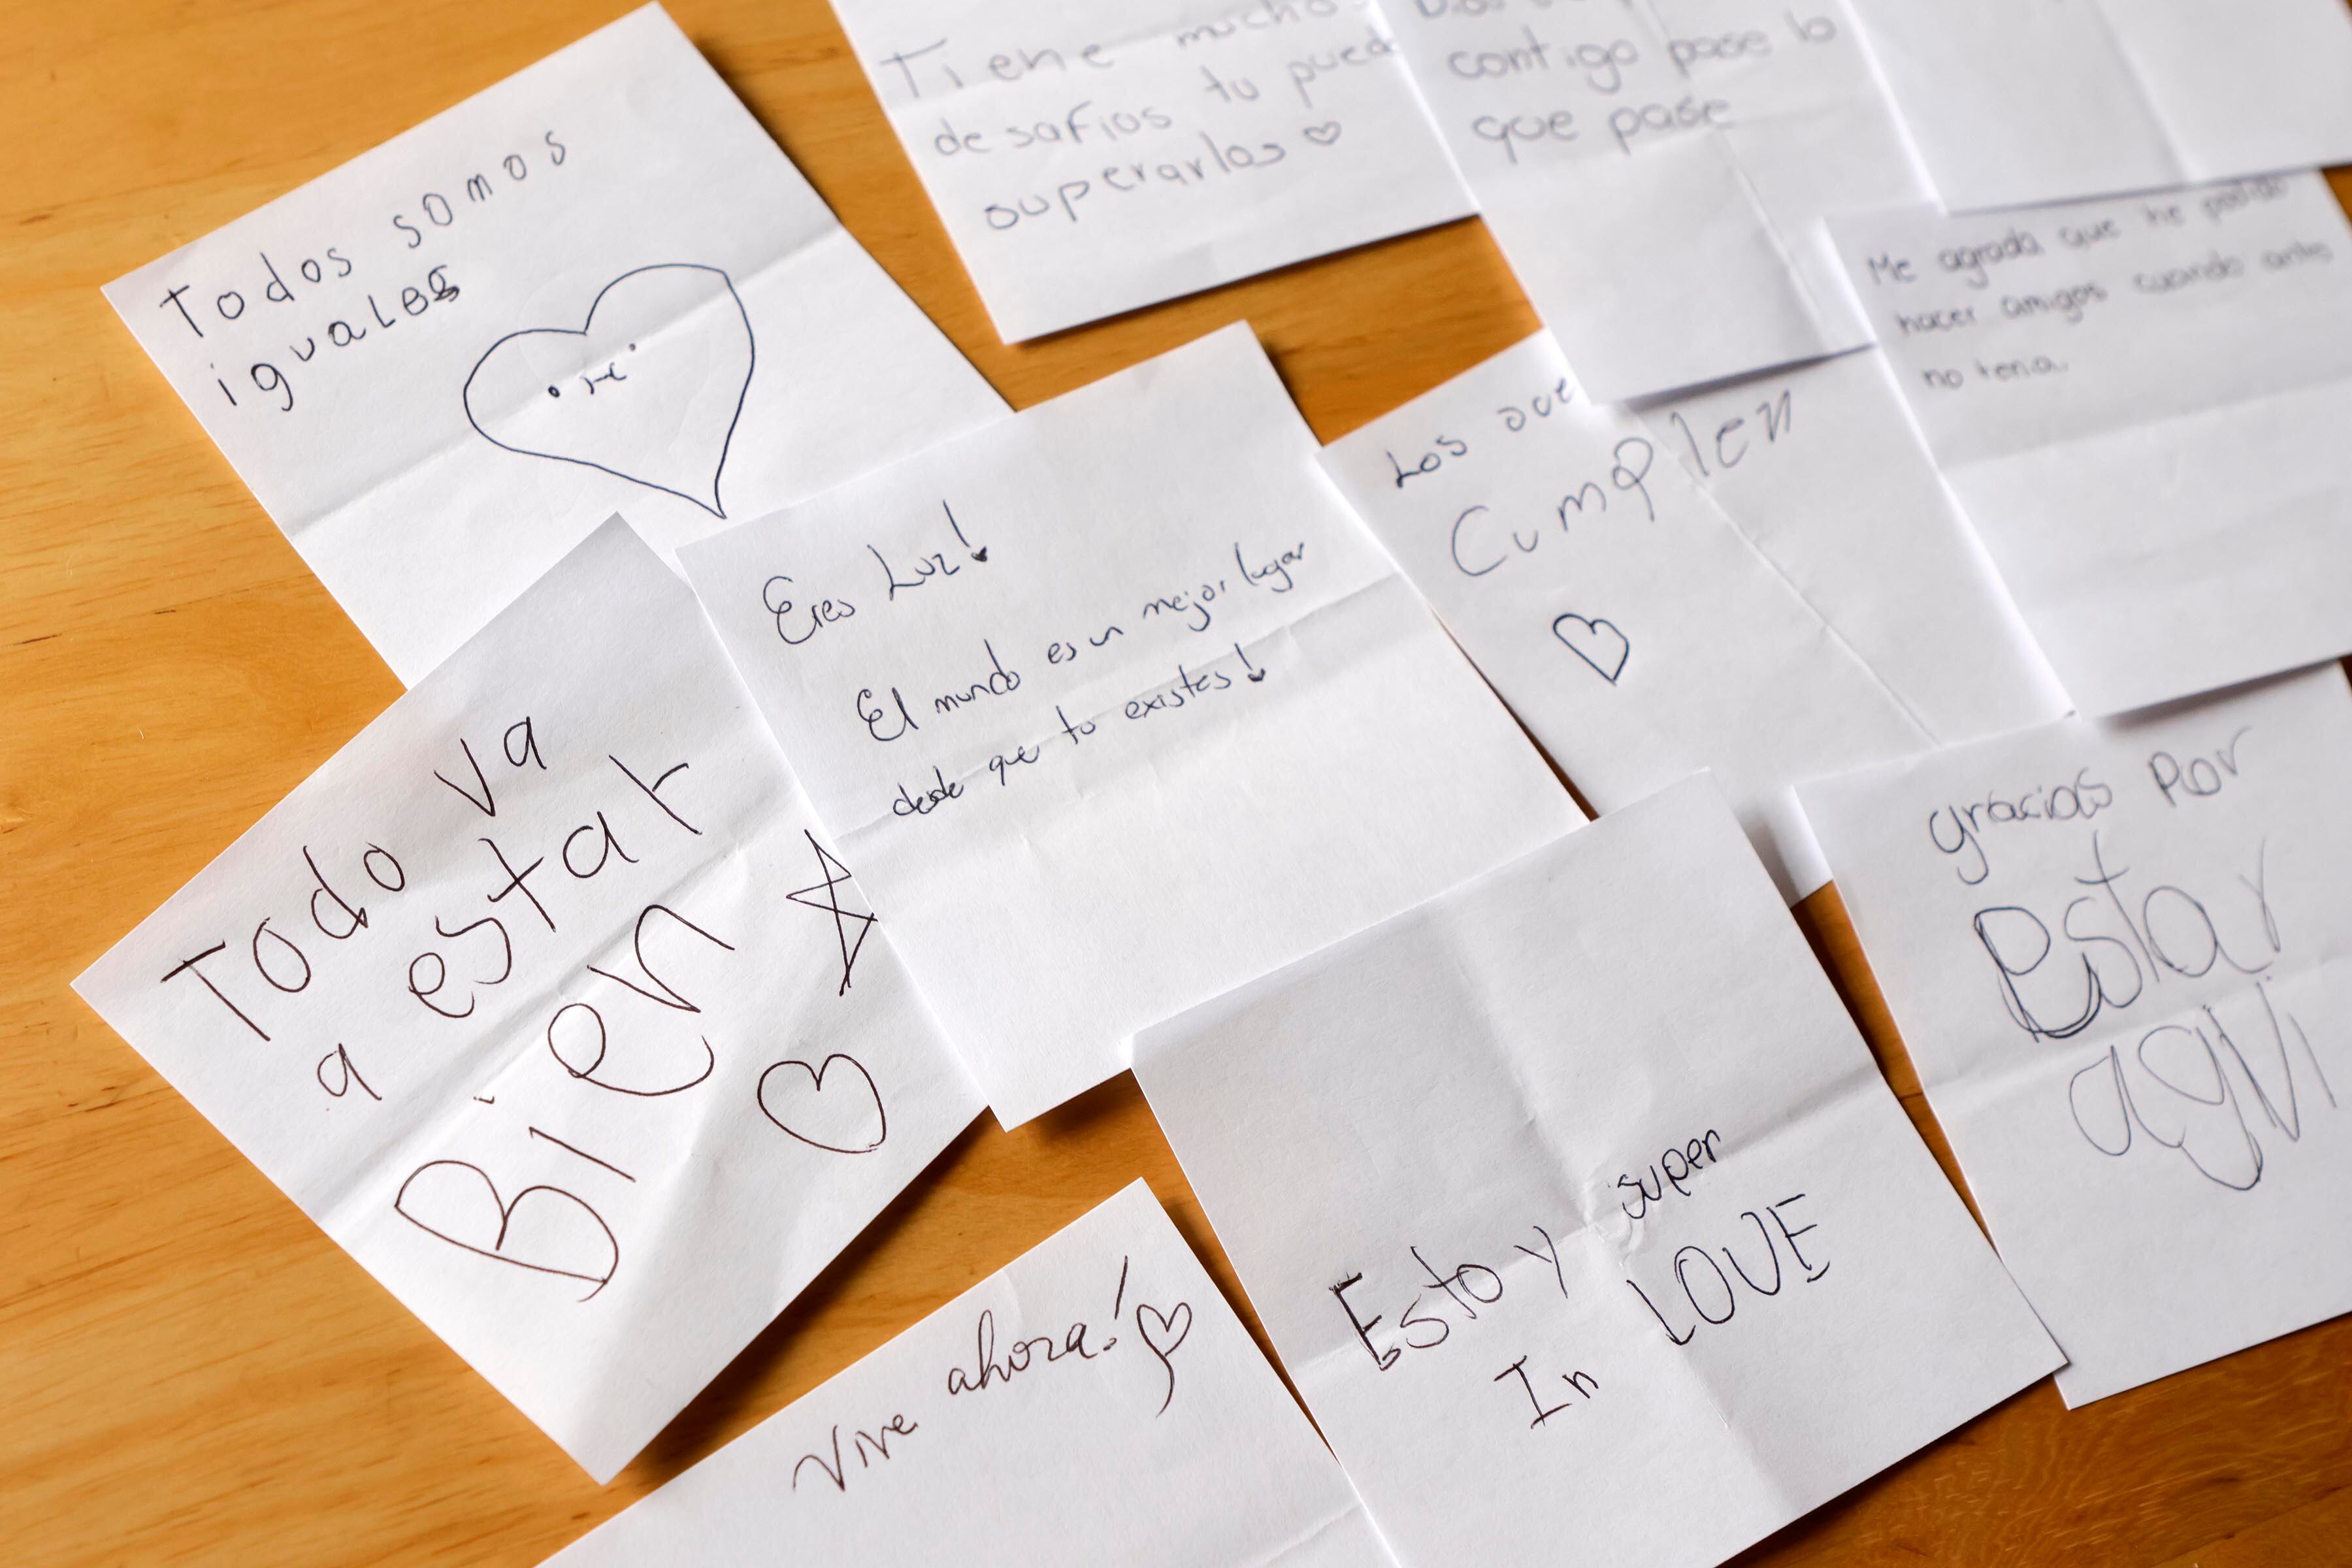 Todos somos
iguales
Tiene muchos
desafios tu puede
superarlos
contigo pase lo
que pase
Me agrada que he podido
hacer amigos cuando antes
no tenia.
Los que
Cumplen
Eres Luz!
El mundo es un mejor lugar
desde que tu existes!
Todo va
a estar
Bien
gracias por
Estar
aqui
Estoy super
In LOVE
Vive ahora!